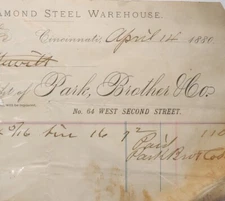 AMOND STEEL WAREHOUSE.
Cincinnati, April 14 1880
of Park, Brother & Co.
No. 64 WEST SECOND STREET.
16 7 2
Paid
Park Bro & Co